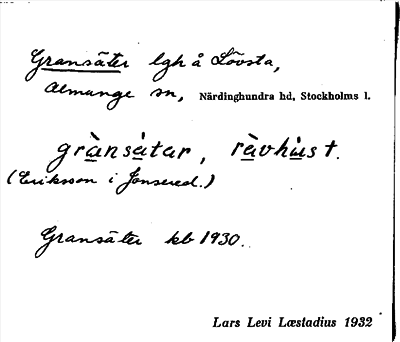 Gransäter lgh å Lövsta,
Almunge sn, Närdinghundra hd, Stockholms l.
grànsätar, rävhùst.
(Eriksson i Jonsered.)
Gransäter kb 1930.
Lars Levi Læstadius 1932